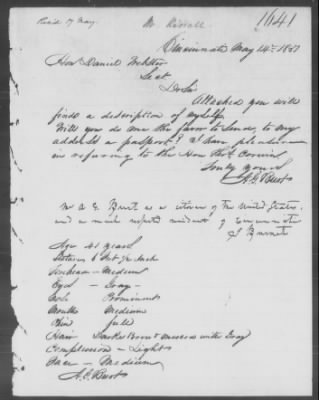 Recd 17 May.
Mr. Kissall
1641
Cincinnati May 14th 1851
Hon Daniel Webster
Sect
Dr Sir
Attached you will
find a description of myself.
Will you do me the favor to send, to my
address a passport? I have pleasure
in referring to the Hon Thos Corwin
Truly yours
A. G. Burt
Mr A G Burt is a citizen of the United States,
and a much respected resident of Cincinnati
J Burnet
Age 41 years
Stature 6 feet Inch
Forehead — Medium
Eyes — Gray —
Nose Prominent
Mouth Medium
Chin full
Hair Dark Brown mixed with Gray
Complexion — Light
Face — Medium
A. G. Burt